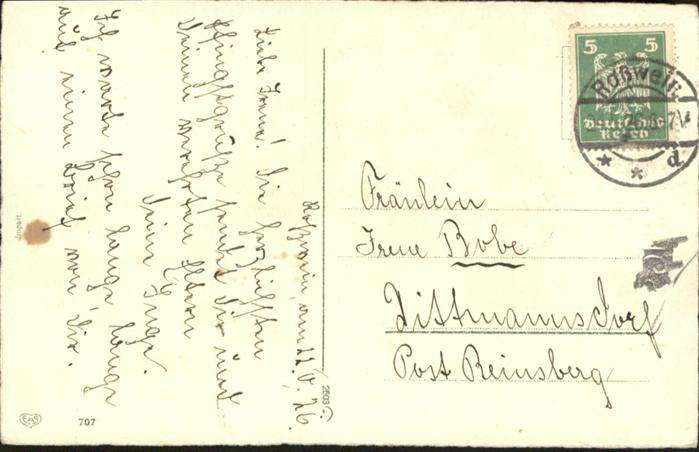 Roßwein, am 22. V. 26.
Liebe Irene! Die herzlichsten
Pfingstgrüße sendet Dir und
Deinen werten Eltern
Deine Inge.
Ich warte schon lange, lange
auf einen Brief von Dir.
Fräulein
Irene Bobe
Dittmannsdorf
Post Reinsberg
5 5
Deutsches
Reich
Roßwein
d
2503
707
EAS